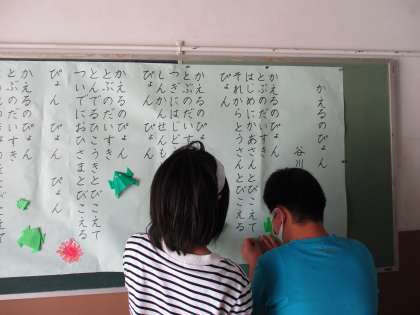 かえるのぴょん
谷川
かえるのぴょん
とぶのがだいすき
はじめにかあさんとびこえて
それからとうさんとびこえる
ぴょん
かえるのぴょん
とぶのがだいすき
つぎには
しんかんせんも
ぴょん ぴょん
かえるのぴょん
とぶのがだいすき
とんでるひこうきとびこえて
ついでにおひさまとびこえる
ぴょん ぴょん ぴょん
かえるのぴょん
とぶのがだいすき